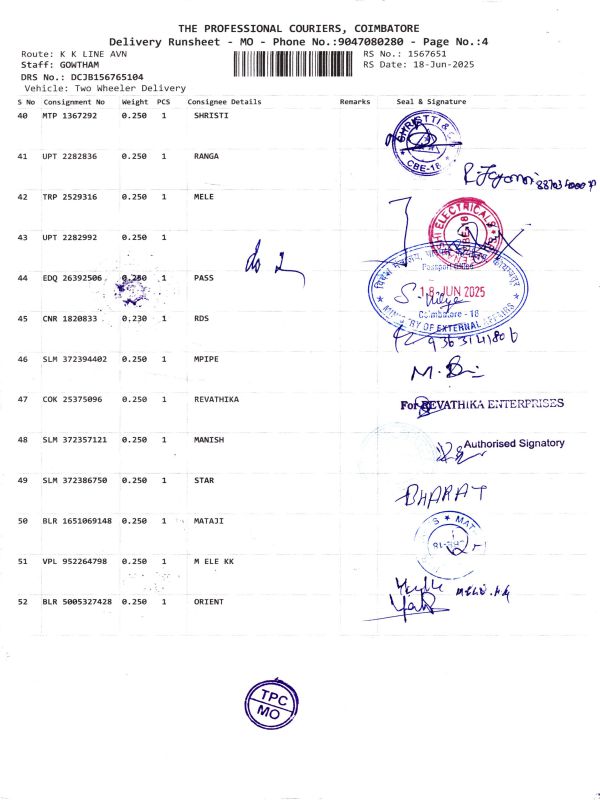 THE PROFESSIONAL COURIERS, COIMBATORE
Delivery Runsheet - MO - Phone No.:9047080280 - Page No.:4
Route: K K LINE AVN
RS No.: 1567651
Staff: GOWTHAM
RS Date: 18-Jun-2025
DRS No.: DCJB156765104
Vehicle: Two Wheeler Delivery
S No Consignment No Weight PCS Consignee Details Remarks Seal & Signature
40 MTP 1367292 0.250 1 SHRISTI
CBE-18
41 UPT 2282836 0.250 1 RANGA
42 TRP 2529316 0.250 1 MELE
ELECTRICALS
43 UPT 2282992 0.250 1
44 EDQ 26392506 0.250 1 PASS
Passport Office
18 JUN 2025
Coimbatore - 18
MINISTRY OF EXTERNAL AFFAIRS
45 CNR 1820833 0.230 1 RDS
46 SLM 372394402 0.250 1 MPIPE
47 COK 25375096 0.250 1 REVATHIKA
For REVATHIKA ENTERPRISES
48 SLM 372357121 0.250 1 MANISH
Authorised Signatory
49 SLM 372386750 0.250 1 STAR
BHARAT
50 BLR 1651069148 0.250 1 MATAJI
51 VPL 952264798 0.250 1 M ELE KK
52 BLR 5005327428 0.250 1 ORIENT
TPC
MO